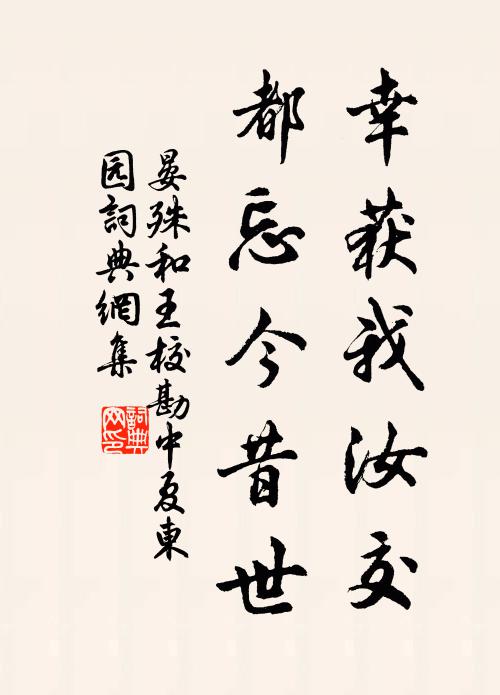 幸获我汝交
都忘今昔世
晏殊和王校勘中夏東
园詞典網集
詞典
网印